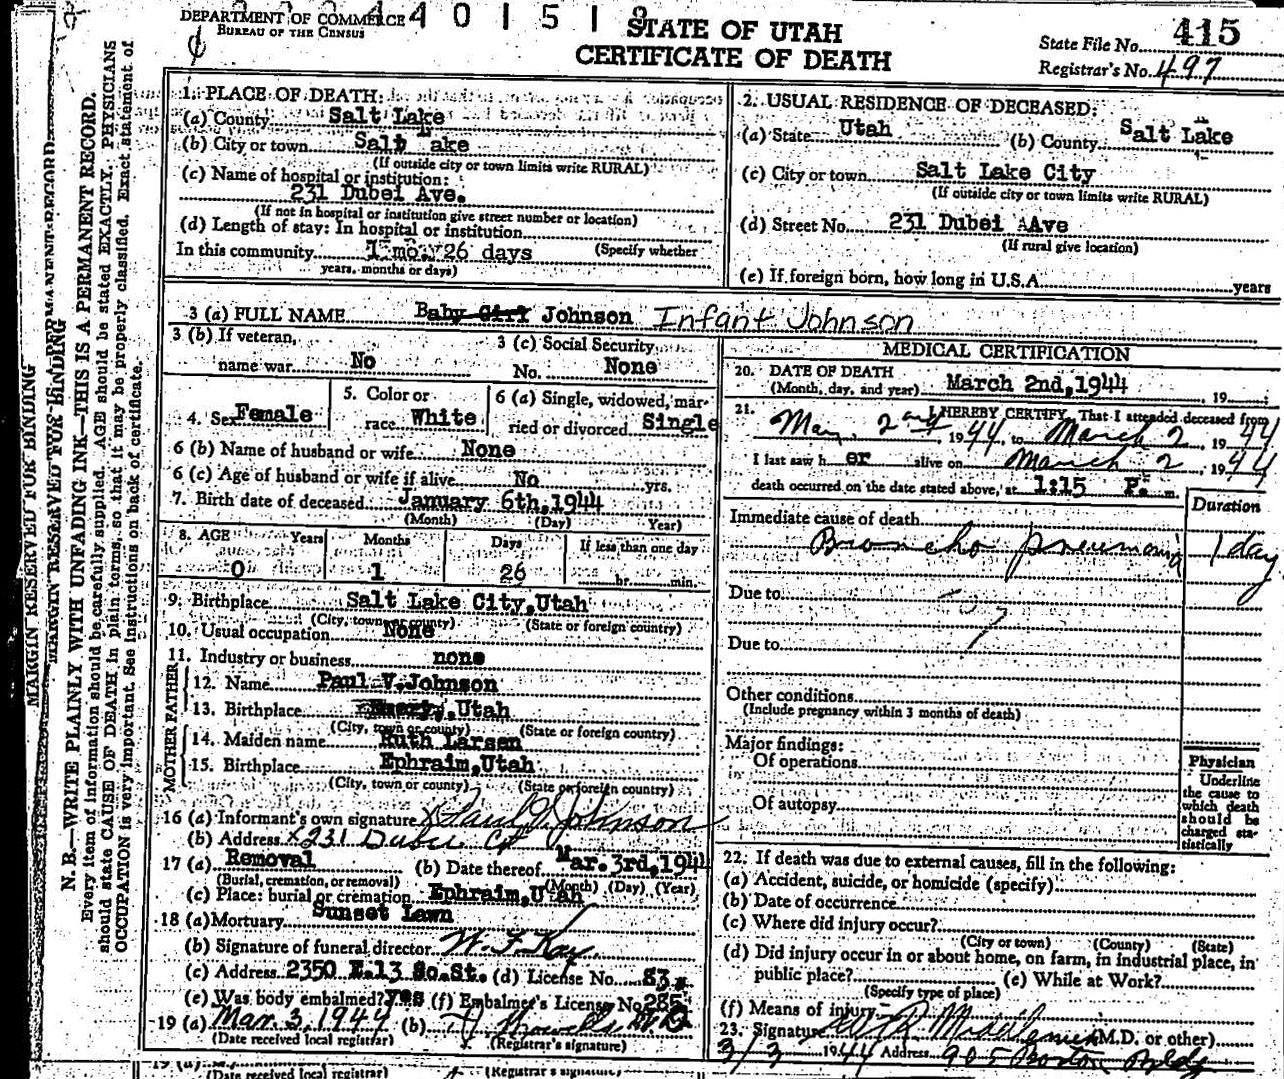 DEPARTMENT OF COMMERCE
BUREAU OF THE CENSUS
4 4 0 1 5 1
STATE OF UTAH
CERTIFICATE OF DEATH
State File No. 415
Registrar's No. 497
MARGIN RESERVED FOR BINDING
MARGIN RESERVED FOR BINDING
N. B.—WRITE PLAINLY WITH UNFADING INK—THIS IS A PERMANENT RECORD.
Every item of information should be carefully supplied. AGE should be stated EXACTLY. PHYSICIANS
should state CAUSE OF DEATH in plain terms, so that it may be properly classified. Exact statement of
OCCUPATION is very important. See instructions on back of certificate.
1. PLACE OF DEATH:
(a) County Salt Lake
(b) City or town Salt Lake
(If outside city or town limits write RURAL)
(c) Name of hospital or institution:
231 Dubei Ave.
(If not in hospital or institution give street number or location)
(d) Length of stay: In hospital or institution
In this community 1 mo. 26 days (Specify whether
years, months or days)
2. USUAL RESIDENCE OF DECEASED:
(a) State Utah (b) County Salt Lake
(c) City or town Salt Lake City
(If outside city or town limits write RURAL)
(d) Street No. 231 Dubei AAve
(If rural give location)
(e) If foreign born, how long in U.S.A. years
3 (a) FULL NAME Baby Girl Johnson Infant Johnson
3 (b) If veteran, name war No
3 (c) Social Security No. None
4. Sex Female
5. Color or race White
6 (a) Single, widowed, married or divorced Single
6 (b) Name of husband or wife None
6 (c) Age of husband or wife if alive No yrs.
7. Birth date of deceased January 6th, 1944
(Month) (Day) Year)
8. AGE Years Months Days If less than one day
0 1 26 hr. min.
9. Birthplace Salt Lake City, Utah
(City, town or county) (State or foreign country)
10. Usual occupation None
11. Industry or business none
FATHER
12. Name Paul V. Johnson
13. Birthplace , Utah
(City, town or county) (State or foreign country)
MOTHER
14. Maiden name Ruth Larsen
15. Birthplace Ephraim, Utah
(City, town or county) (State or foreign country)
16 (a) Informant's own signature x Paul V. Johnson
(b) Address x 231 Dubei
17 (a) Removal (b) Date thereof Mar. 3rd, 1944
(Burial, cremation, or removal) (Month) (Day) (Year)
(c) Place: burial or cremation Ephraim, Utah
18 (a) Mortuary Sunset Lawn
(b) Signature of funeral director W. F. Kay
(c) Address 2350 E. 13 So. St. (d) License No. 83
(e) Was body embalmed? yes (f) Embalmer's License No. 285
19 (a) Mar. 3, 1944 (b)
(Date received local registrar) (Registrar's signature)
MEDICAL CERTIFICATION
20. DATE OF DEATH
(Month, day, and year) March 2nd, 1944 19
21. I HEREBY CERTIFY, That I attended deceased from
Mar. 2nd 1944, to March 2, 1944
I last saw h er alive on March 2 1944
death occurred on the date stated above, at 1:15 P. m.
Duration
Immediate cause of death
Broncho pneumonia 1 day
Due to
Due to
Other conditions
(Include pregnancy within 3 months of death)
Major findings:
Of operations
Of autopsy
Physician
Underline
the cause to
which death
should be
charged sta-
tistically
22. If death was due to external causes, fill in the following:
(a) Accident, suicide, or homicide (specify)
(b) Date of occurrence
(c) Where did injury occur?
(City or town) (County) (State)
(d) Did injury occur in or about home, on farm, in industrial place, in
public place? (e) While at Work?
(Specify type of place)
(f) Means of injury
23. Signature (M.D. or other)
3/3 1944 Address 905 Boston Bldg
19 (a)
(Date received local registrar) (Registrar's signature)